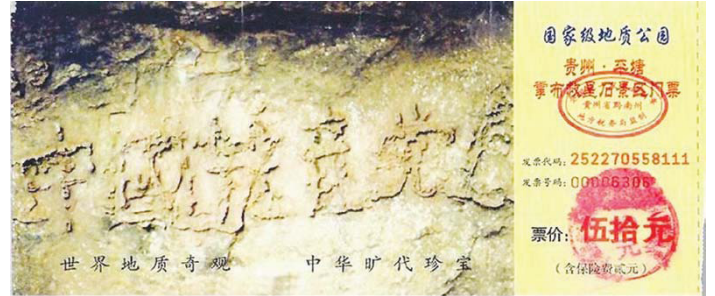 中国共産党
世界地质奇观 中华旷代珍宝
国家级地质公园
贵州·平塘
掌布藏字石景区门票
贵州省黔南州
地方税务局监制
发票代码:252270558111
发票号码:00006306
票价:伍拾元
(含保险费贰元)